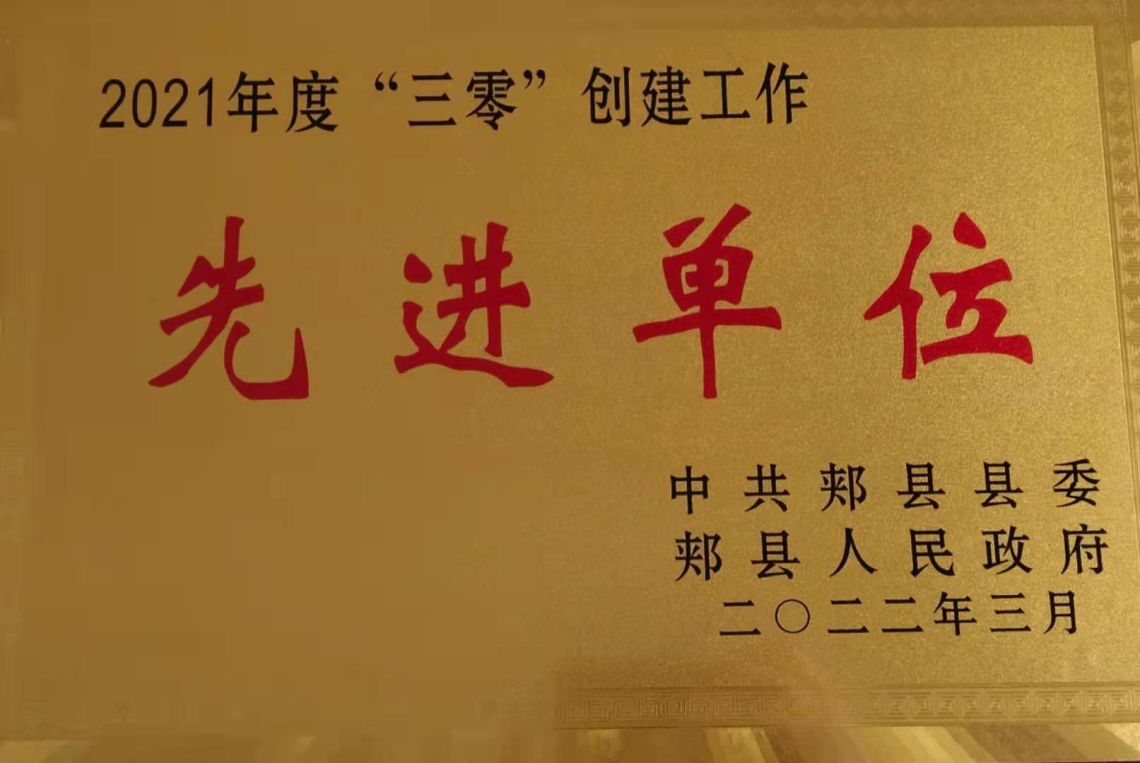 2021年度“三零”创建工作
先进单位
中共郏县县委
郏县人民政府
二〇二二年三月